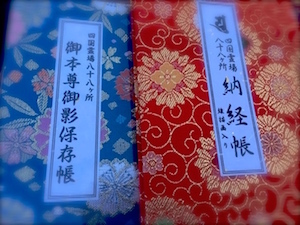 四国霊場八十八ヶ所
御本尊御影保存帳
四国霊場
八十八ヶ所
納経帳